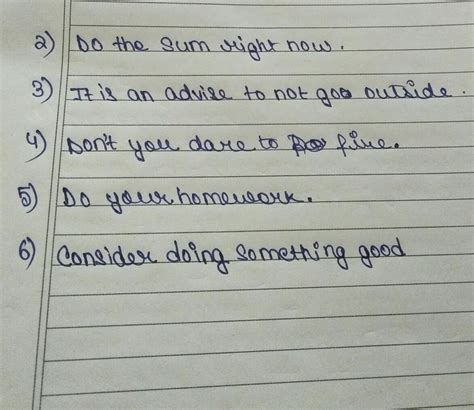 2) Do the sum right now.
3) It is an advise to not go outside.
4) Don't you dare to fire.
5) Do your homework.
6) Consider doing something good